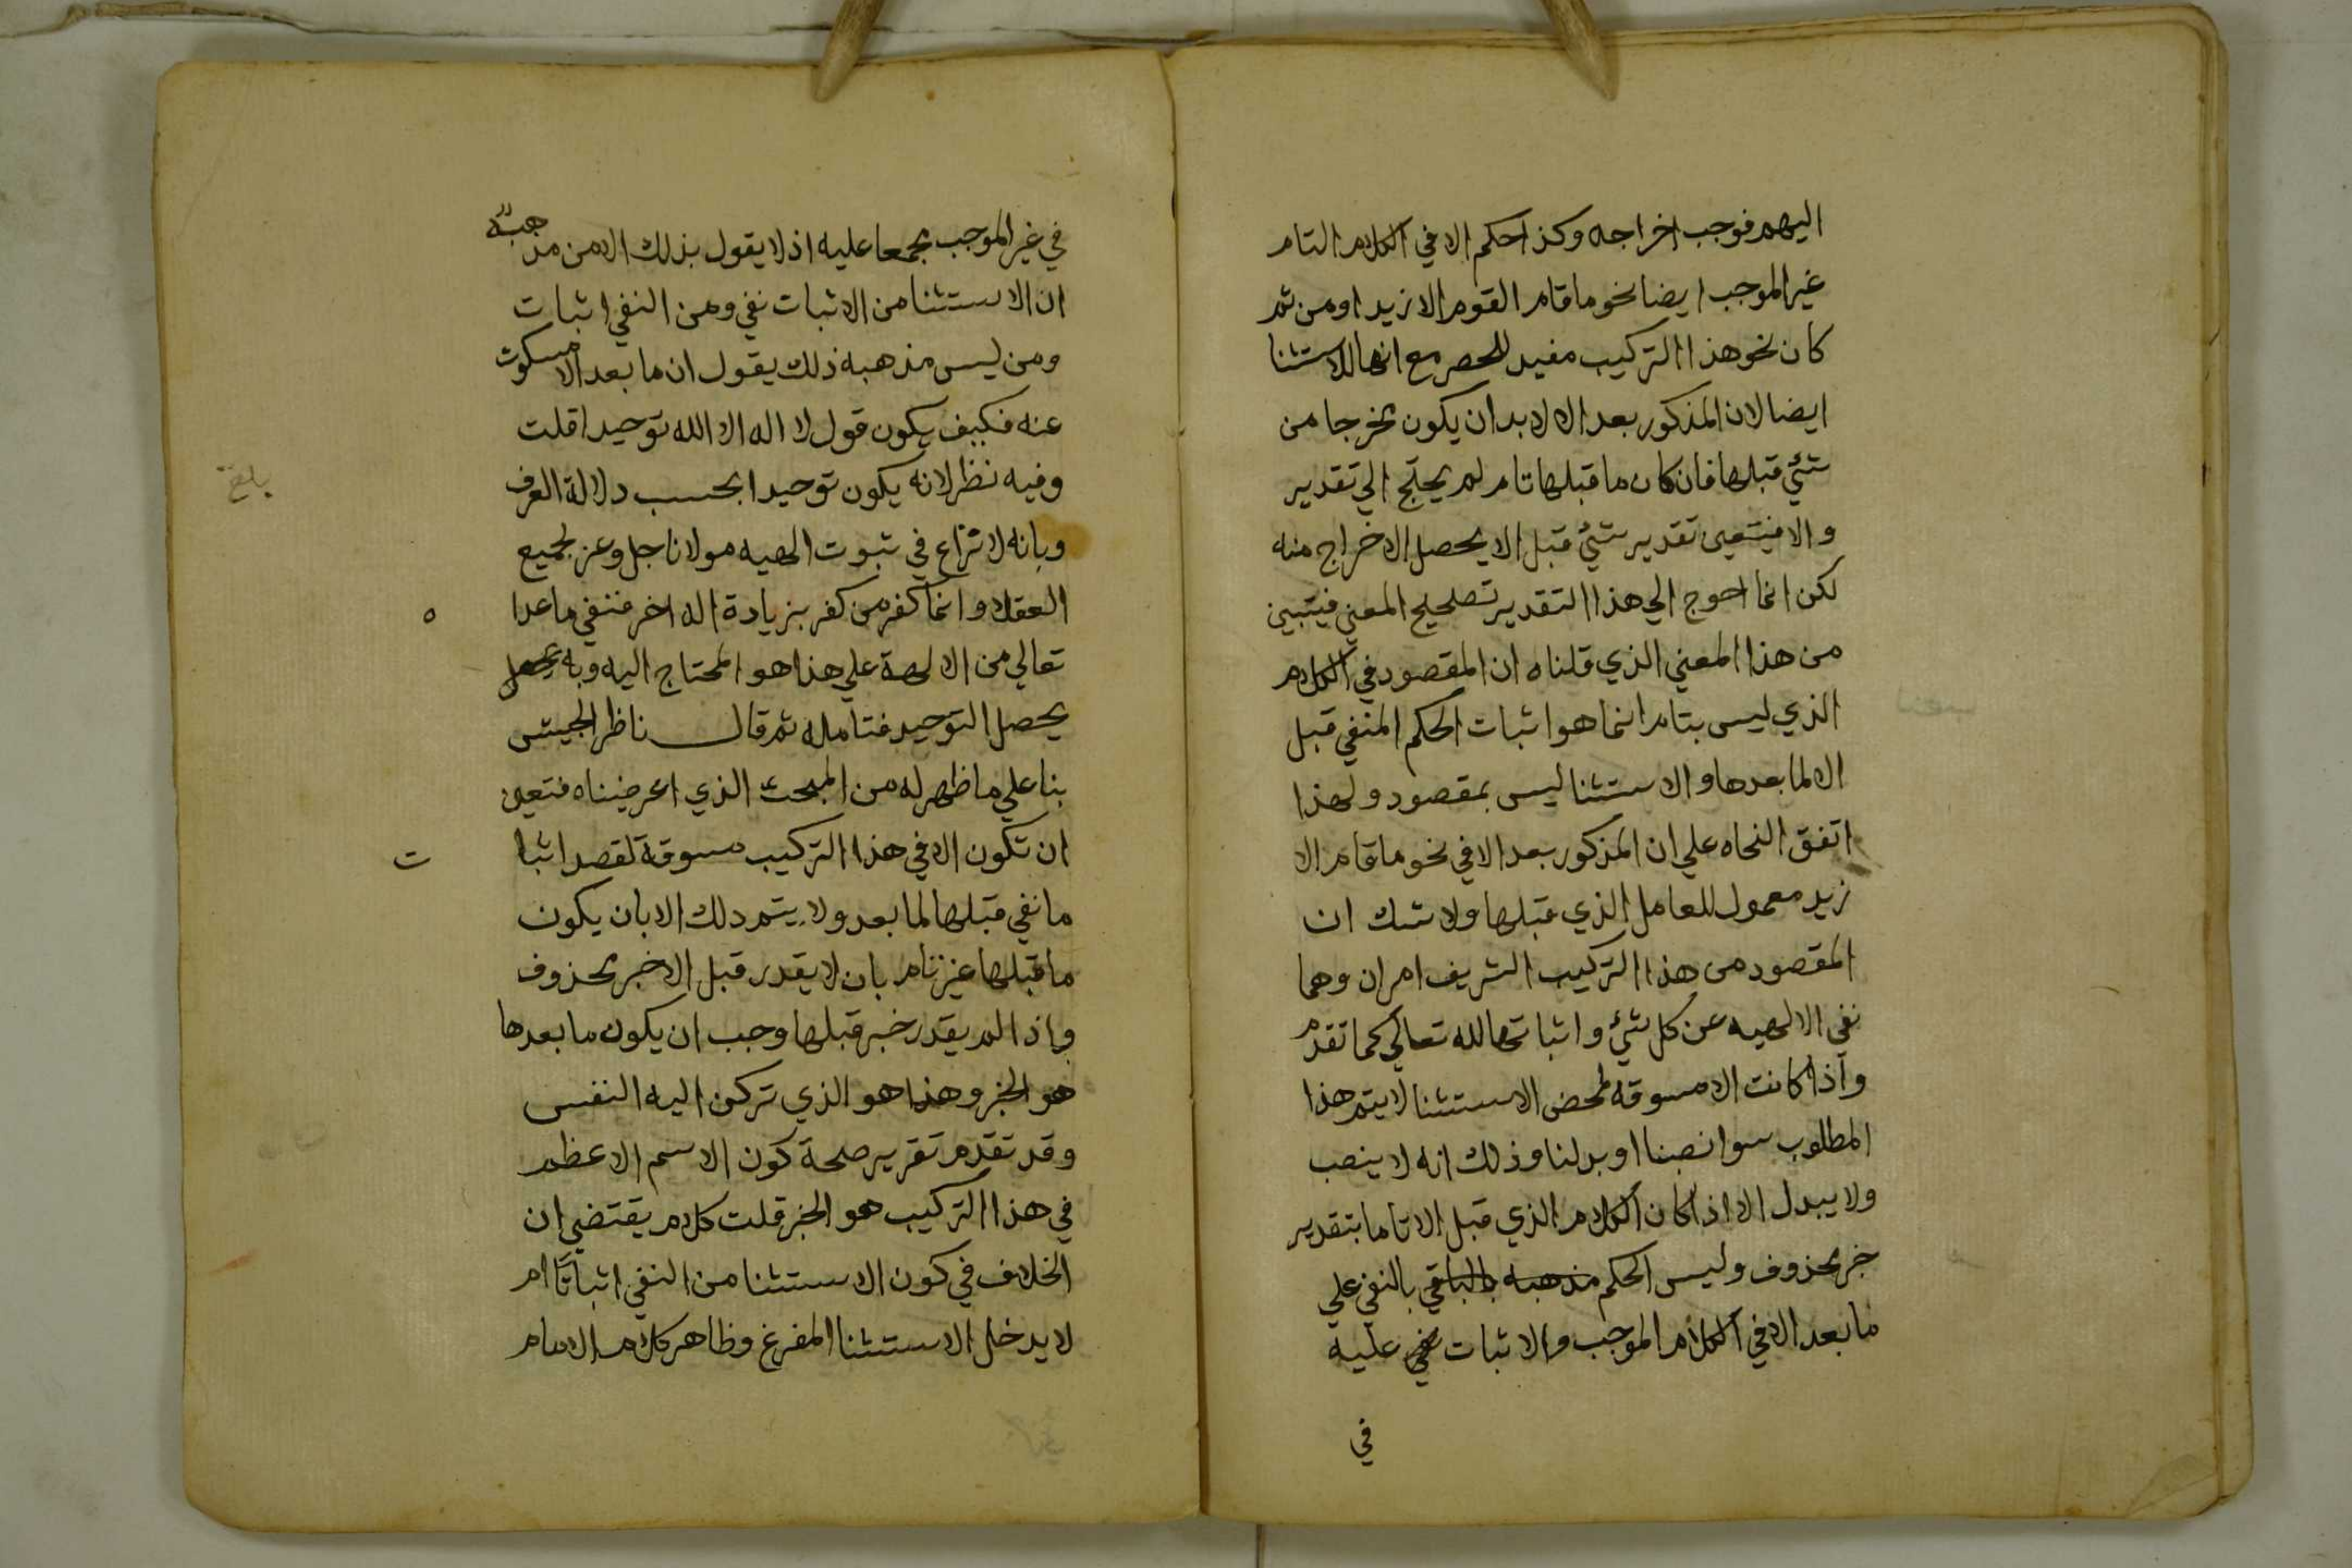 اليهم فوجب اخراجه وكذا حكم الا في الكلام التام
غير الموجب ايضا نحو ما قام القوم الا زيد او من ثم
كان نحو هذا التركيب مفيد للحصر مع انها للاستثنا
ايضا لان المذكور بعد الا لا بد ان يكون مخرجا من
شئ قبلها فان كان ما قبلها تام لم يحتج الي تقدير
والا فيتعين تقدير شئ قبل الا يحصل الاخراج منه
لكن انما احوج الي هذا التقدير تصحيح المعني فيتبين
من هذا المعني الذي قلناه ان المقصود في الكلام
الذي ليس بتام انما هو اثبات الحكم المنفي قبل
الا لما بعدها والاستثنا ليس بمقصود ولهذا
اتفق النحاه علي ان المذكور بعد الا في نحو ما قام الا
زيد معمول للعامل الذي قبلها ولا شك ان
المقصود من هذا التركيب الشريف امران وهما
نفي الالهيه عن كل شئ واثباتها لله تعالي كما تقدم
واذا كانت الا مسوقه لمحض الاستثنا لا يتم هذا
المطلوب سوا نصبنا او بدلنا وذلك انه لا ينصب
ولا يبدل الا اذا كان الكلام الذي قبل الا تاما بتقدير
خبر محذوف وليس الحكم مذهبه بالباقي بالنفي علي
ما بعد الا في الكلام الموجب والاثبات عليه
في
في غير الموجب مجمعا عليه اذ لا يقول بذلك الا من مذهبه
ان الاستثنا من الاثبات نفي ومن النفي اثبات
ومن ليس مذهبه ذلك يقول ان ما بعد الا مسكوت
عنه فكيف يكون قول لا اله الا الله توحيدا قلت
وفيه نظر لانه يكون توحيدا بحسب دلالة العرف
وبانه لا نزاع في ثبوت الهيه مولانا جل وعز لجميع
العقلا وانما كفر من كفر بزيادة اله اخر فنفي ما عدا ه
تعالي من الالهة علي هذا هو المحتاج اليه وبه يحصل
يحصل التوحيد فتامله ثم قال ناظر الجيش
بنا علي ما ظهر له من المبحث الذي اعرضناه فتعين
ان تكون الا في هذا التركيب مسوقة لقصد اثبا ت
ما نفي قبلها لما بعد ولا يتم دلك الا بان يكون
ما قبلها غير تام بان لا يقدر قبل الا خبر محذوف
واذا لم يقدر خبر قبلها وجب ان يكون ما بعدها
هو الخبر وهذا هو الذي تركن اليه النفس
وقد تقدم تقرير صحة كون الاسم الاعظم
في هذا التركيب هو الخبر قلت كلام يقتضي ان
الخلاف في كون الاستثنا من النفي اثباتا ام
لا يدخل الاستثنا المفرغ وظاهر كلام الامام
بلغ